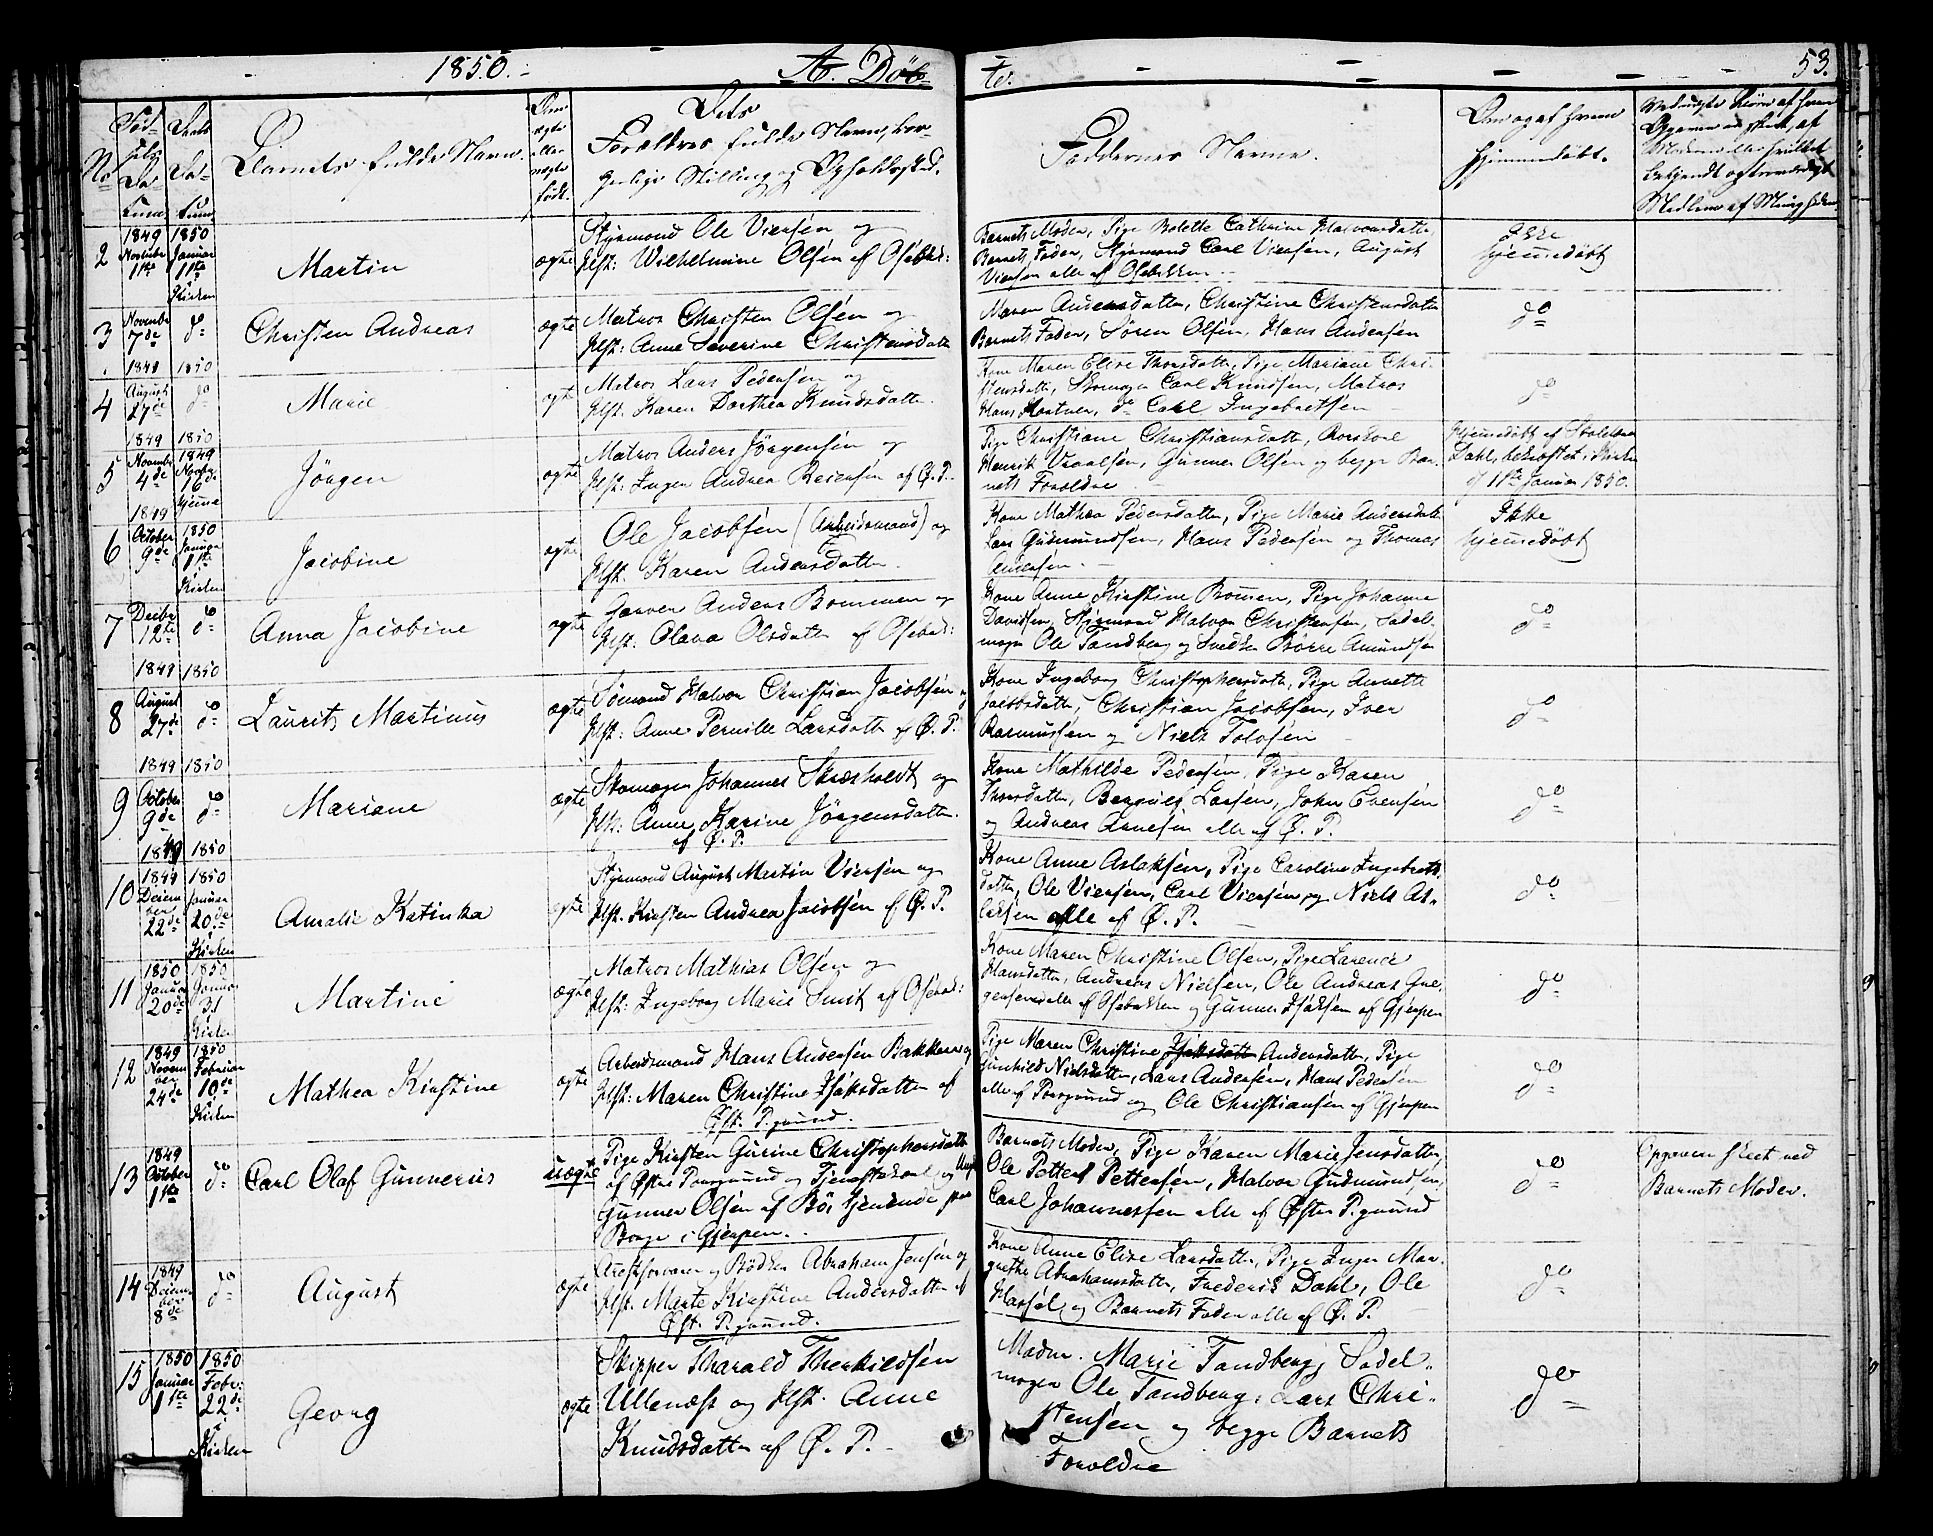 1850.
A. Döb-
te.
53.
No
Barnets fulde Navn.
Dets
Forældres fulde Navn, bor-
gerlige Stilling og Opholdssted.
Faddernes Navne.
Om og af hvem
hjemmedøbt.
2
1849
1ste
1850
Januar
1ste
Kirken
Martin
ægte
Styrmand Ole Viersén og
Hst: Wilhelmine Olsén af Osebak:
Barnets Moder, Pige Bolette Cathrine Halvorsdatter,
Barnets Fader, Styrmand Carl Viersén, August
Viersén alle af Osebakken
Ikke
hjemmedöbt
3
Novembr
7de
do
Christen Andreas
ægte
Matros Christen Olsén og
Hst: Anne Severine Christensdatter
Maren Andersdatter, Christine Christensdatter
Barnets Fader, Sören Olsén, Hans Andersén
do
4
1849
August
27de
1850
do
Marie
ægte
Matros Lars Pedersén og
Hst. Karen Dorthea Knudsdatter.
Kone Maren Elise Thorsdatter, Pige Mariane Chri-
stensdatter, Skomager Carl Knudsén, Matros
do Carl Ingebretsén
do
5
1849
Novembr
4de
1850
1849
16de
hjemme
Jörgen
ægte
Matros Anders Jörgensén og
Hst: Inger Andrea Reiersén af Ø. P.
Pige Christiane Christiansdatter,
Henrik Vraalsén, Gunner Olsén og begge Bar-
nets Forældre
Dahl, bekræftet i Kirken
d 1ste Januar 1850.
6
1849
October
9de
1850
Januar
1ste
Kirken
Jacobine
ægte
Ole Jacobsén (Arbeidsmand) og
Hst. Karen Andersdatter.
Kone Mathea Pedersdatter, Pige Marie Andersdatter
Lars Gudmundsén, Hans Pedersén og Thomas
Andersén.
Ikke
hjemmedöbt
7
Decbr
12te
do
Anna Jacobine
ægte
Garver Anders Bommen og
Hst. Olava Olsdatter af Osebak:
Kone Anne Kirstine Bommen, Pige Johanne
Davidsén, Styrmand Halvor Christensén, Sadel-
mager Ole Tandberg og Snedker Börre Amundsén
do
8
1849
August
27de
1850
do
Laurits Martinus
ægte
Sömand Halvor Christian Jacobsén og
Hst: Anne Pernille Larsdatter af Ø. P.
Kone Ingeborg Christophersdatter, Pige Annette
Jacobsdatter, Christian Jacobsén, Iver
Rasmussén og Niels Tolosén
do
9
1849
October
9de
1850
do
Mariane
ægte
Skomager Johannes Skræsholdt og
Hst: Anne Karine Jörgensdatter.
af Ø. P.
Kone Mathilde Pedersén, Pige Karen
Thorsdatter, Larsén, John Evensén
og Andreas Arnesén alle af Ø. P.
do
10
1849
1849
Decem
ber
22de
1850
1850
Januar
20de
Kirken
Amalie Katinka
ægte
Styrmand August Martin Viersén og
Hst. Kirsten Andrea Jacobsén af Ø. P.
Kone Anne Aslaksén, Pige Caroline Ingebrets-
datter, Ole Viersén, Carl Viersén og Niels As-
laksén alle af Ø. P.
do
11
1850
Januar
20de
1850
Januar
31
Kirken
Martine
ægte
Matros Mathias Olsén og
Hst. Ingeborg Marie Smit af Osebak:
Kone Maren Christine Olsén, Pige Larence
Hansdatter, Andreas Nielsén, Ole Andreas
alle af Osebakken og Gunner Isaksén af Gjerpen
do
12
1849
Novem
ber
24de
1850
Februar
10de
i
Kirken
Mathea Kirstine
ægte
Arbeidsmand Hans Andersén Bakken og
Hst: Maren Christine Isaksdatter af
Öst: P.grund.
Pige Maren Christine Isaksdatter Andersdatter, Pige
Gunhild Nielsdatter, Lars Andersén, Hans Pedersén
alle af Porsgrund og Ole Christiansén af Gjerpen
do
13
1849
October
1ste
do
Carl Olaf Gunnerius
uægte
Pige Kirsten Gurine Christophersdatter
af Östre Porsgrund og Tjenestekarl og Ungk
Gunner Olsén af Bö, tjenende paa
Borge i Gjerpen.
Barnets Moder, Pige Karen Marie Jensdatter,
Ole Petter Pettersén, Halvor Gudmundsén,
Carl Johannesén alle af Öster P.grund
do
Opgaven skeet ved
Barnets Moder.
14
1849
Decem
ber
8de
do
August
ægte
Arestforvarer og Bödker Abraham Jensén og
Hst. Marte Kirstine Andersdatter af
Öst: P.grund.
Kone Anne Elise Larsdatter, Pige Inger Mar-
grethe Abrahamsdatter, Frederik Dahl, Ole
og Barnets Fader alle af Ø. P.
do
15
1850
Januar
1ste
1850
Febr:
22de
i
Kirken
Georg
ægte
Skipper Tharald Therkildsén
Ullenæss og Hst. Anne
Knudsdatter af Ø. P.
Madm. Marie Tandberg, Sadel-
mager Ole Tandberg, Lars Chri-
stensén og begge Barnets
Forældre
do